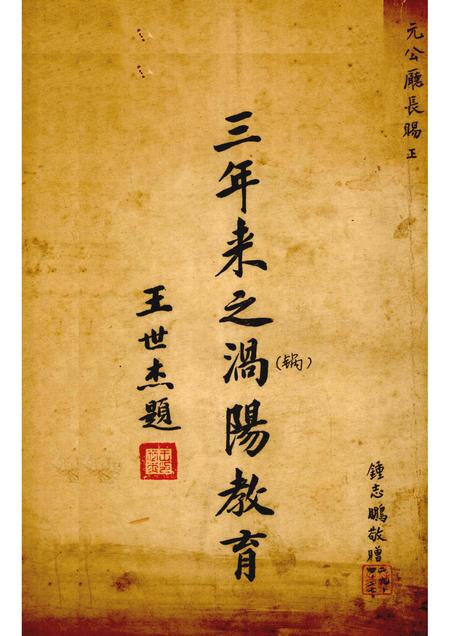 元公廳長賜正
三年来之渦陽教育
(锅)
王世杰題
鍾志鵬敬贈